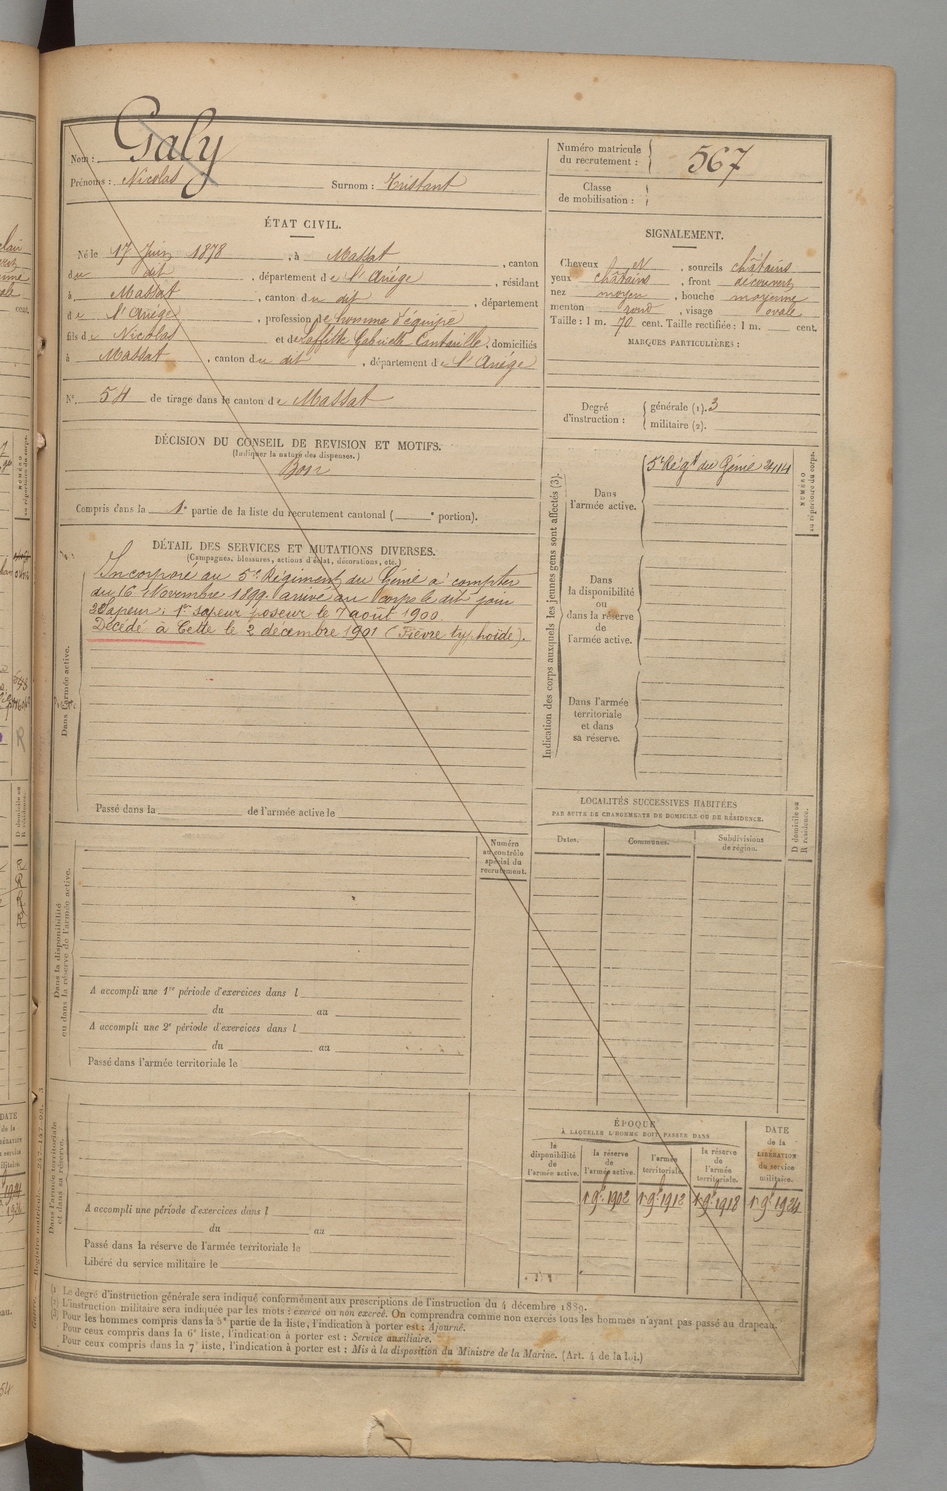 Nom : Galy
Prénoms : Nicolas Surnom : Tristant
Numéro matricule du recrutement : 567
Classe de mobilisation :
ÉTAT CIVIL.
Né le 17 Juin 1878, à Massat, canton
du dit, département de l'Ariège, résidant
à Massat, canton du dit, département
de l'Ariège, profession de homme d'équipe
fils de Nicolas et de Laffitte Gabrielle, domiciliés
à Massat, canton du dit, département de l'Ariége
N° 54 de tirage dans le canton de Massat
SIGNALEMENT.
Cheveux N, sourcils châtains
yeux châtains, front découvert
nez moyen, bouche moyenne
menton rond, visage ovale
Taille : 1 m. 70 cent. Taille rectifiée : 1 m. cent.
MARQUES PARTICULIÈRES :
Degré d'instruction : générale (1). 3
militaire (2).
DÉCISION DU CONSEIL DE REVISION ET MOTIFS.
(Indiquer la nature des dispenses.)
Bon
Compris dans la 1e partie de la liste du recrutement cantonal ( e portion).
DÉTAIL DES SERVICES ET MUTATIONS DIVERSES.
(Campagnes, blessures, actions d'éclat, décorations, etc.)
Incorporé au 5e Régiment du Génie à compter
du 16 Novembre 1899. arrivé au corps le dit jour
2e sapeur; 1er sapeur poseur le 7 août 1900.
Décédé à Cette le 2 décembre 1901 (Fièvre typhoïde).
Dans l'armée active.
Passé dans la de l'armée active le
Indication des corps auxquels les jeunes gens sont affectés (3).
Dans l'armée active.
5e Régt du Génie 2414
NUMÉRO au répertoire du corps.
Dans la disponibilité ou dans la réserve de l'armée active.
Dans l'armée territoriale et dans sa réserve.
LOCALITÉS SUCCESSIVES HABITÉES
PAR SUITE DE CHANGEMENTS DE DOMICILE OU DE RÉSIDENCE.
Dates. Communes. Subdivisions de région. D domicile ou R résidence.
Numéro au contrôle spécial du recrutement.
Dans la disponibilité ou dans la réserve de l'armée active.
A accompli une 1re période d'exercices dans l
du au
A accompli une 2e période d'exercices dans l
du au
Passé dans l'armée territoriale le
Dans l'armée territoriale et dans sa réserve.
A accompli une période d'exercices dans l
du au
Passé dans la réserve de l'armée territoriale le
Libéré du service militaire le
ÉPOQUE
À LAQUELLE L'HOMME DOIT PASSER DANS
la disponibilité de l'armée active. la réserve de l'armée active. l'armée territoriale. la réserve de l'armée territoriale. DATE de la LIBÉRATION du service militaire.
1er 9bre 1902 1er 9bre 1912 1er 9bre 1918 1er 9bre 1924
(1) Le degré d'instruction générale sera indiqué conformément aux prescriptions de l'instruction du 4 décembre 1889.
(2) L'instruction militaire sera indiquée par les mots : exercé ou non exercé. On comprendra comme non exercés tous les hommes n'ayant pas passé au drapeau.
(3) Pour les hommes compris dans la 5e partie de la liste, l'indication à porter est : Ajourné.
Pour ceux compris dans la 6e liste, l'indication à porter est : Service auxiliaire.
Pour ceux compris dans la 7e liste, l'indication à porter est : Mis à la disposition du Ministre de la Marine. (Art. 4 de la loi.)